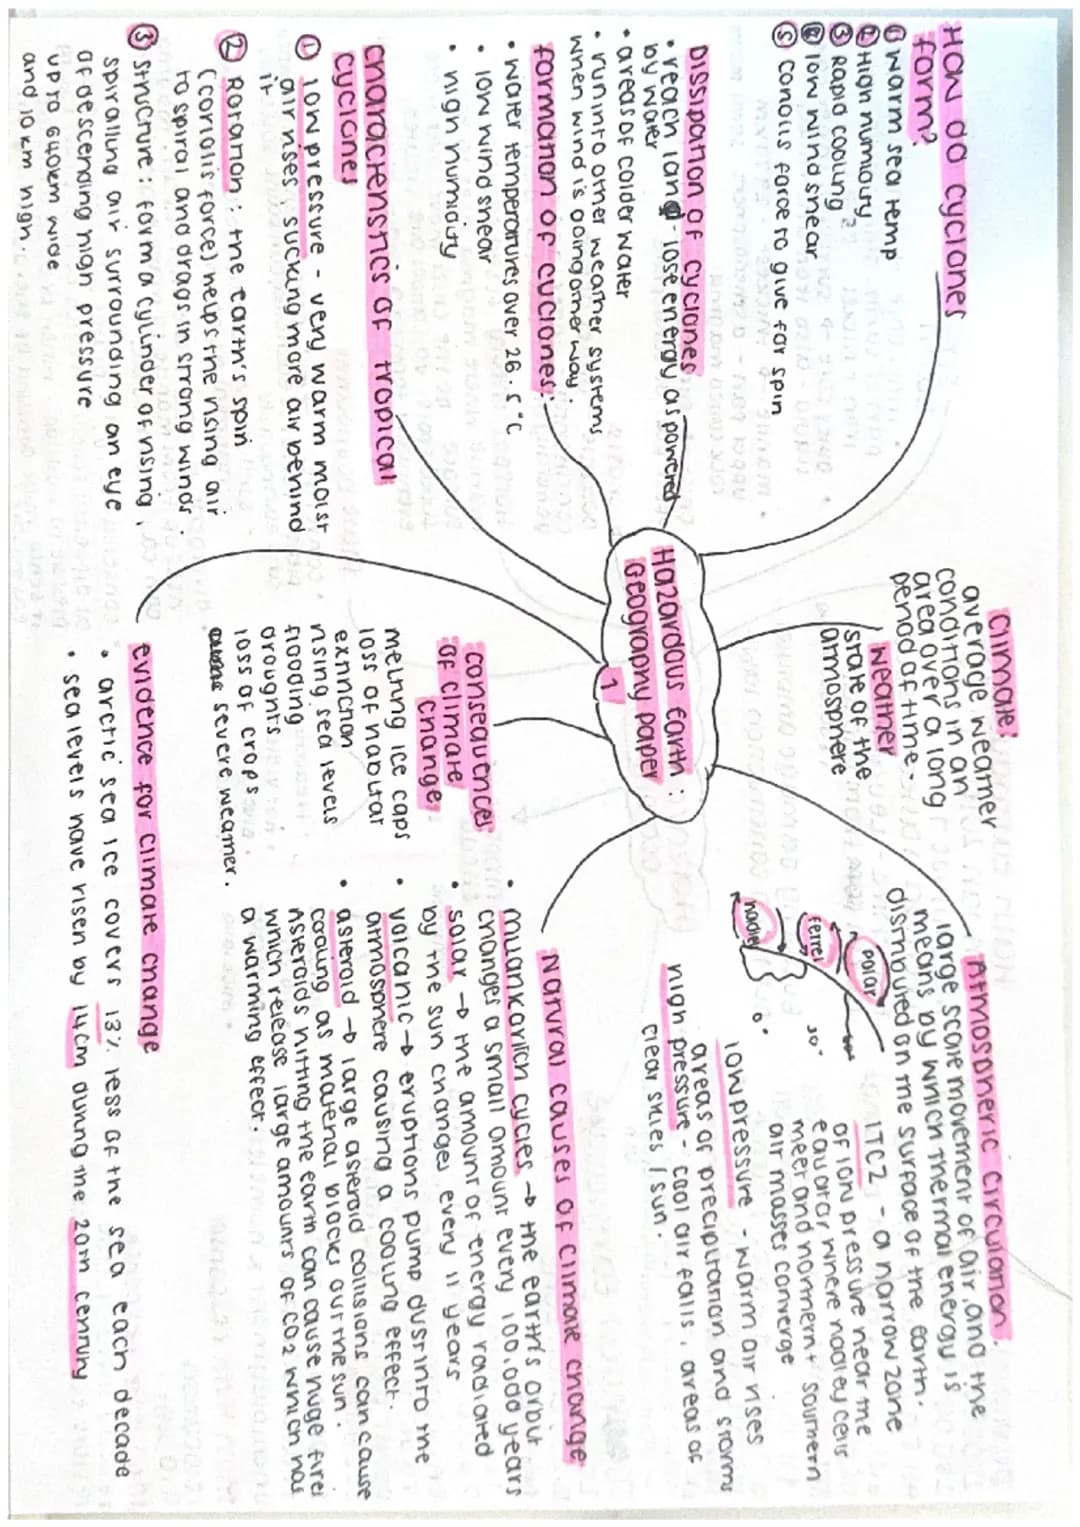 Hazardous Earth:
Geography paper
1
How do cyclones
form?
① warm sea temp
② High humidity
③ Rapid cooling
④ low wind shear
⑤ Coriolis force to give far spin
Dissipation of cyclones
• reach land - lose energy as powered
by water
• areas of colder water
• run into other weather systems
when wind is going other way.
formation of cyclones:
• water temperatures over 26.5°C
• low wind shear
• high humidity
characteristics of tropical
cyclones
① low pressure - very warm moist
air rises, sucking more air behind
it
② Rotation: the earth's spin
(coriolis force) helps the rising air
to spiral and drags in strong winds.
③ structure: form a cylinder of rising,
spiralling air surrounding an eye
of descending high pressure
up to 640km wide
and 10km high.
climate:
average weather
conditions in an
area over a long
period of time.
weather
state of the
atmosphere
consequences
of climate
change
melting ice caps
loss of habitat
extinction
rising sea levels
flooding
droughts
loss of crops
severe weather.
Atmospheric circulation.
large scale movement of air, and the
means by which thermal energy is
distributed on the surface of the earth.
polar
ferrel
hadley
30°
0°
ITCZ - a narrow zone
of low pressure near the
equator where hadley cells
meet and northern + southern
air masses converge
low pressure - warm air rises
areas of precipitation and storms
high pressure - cool air falls, areas of
clear skies / sun.
Natural causes of climate change
• milankovitch cycles → the earth's orbit
changes a small amount every 100,000 years
• solar → the amount of energy radiated
by the sun changes every 11 years
• volcanic → eruptions pump dust into the
atmosphere causing a cooling effect.
• asteroid → large asteroid collisions can cause
cooling as material blocks out the sun.
Asteroids hitting the earth can cause huge fires
which release large amounts of CO2 which has
a warming effect.
evidence for climate change
• arctic sea ice covers 13% less of the sea each decade
• sea levels have risen by 14cm during the 20th century